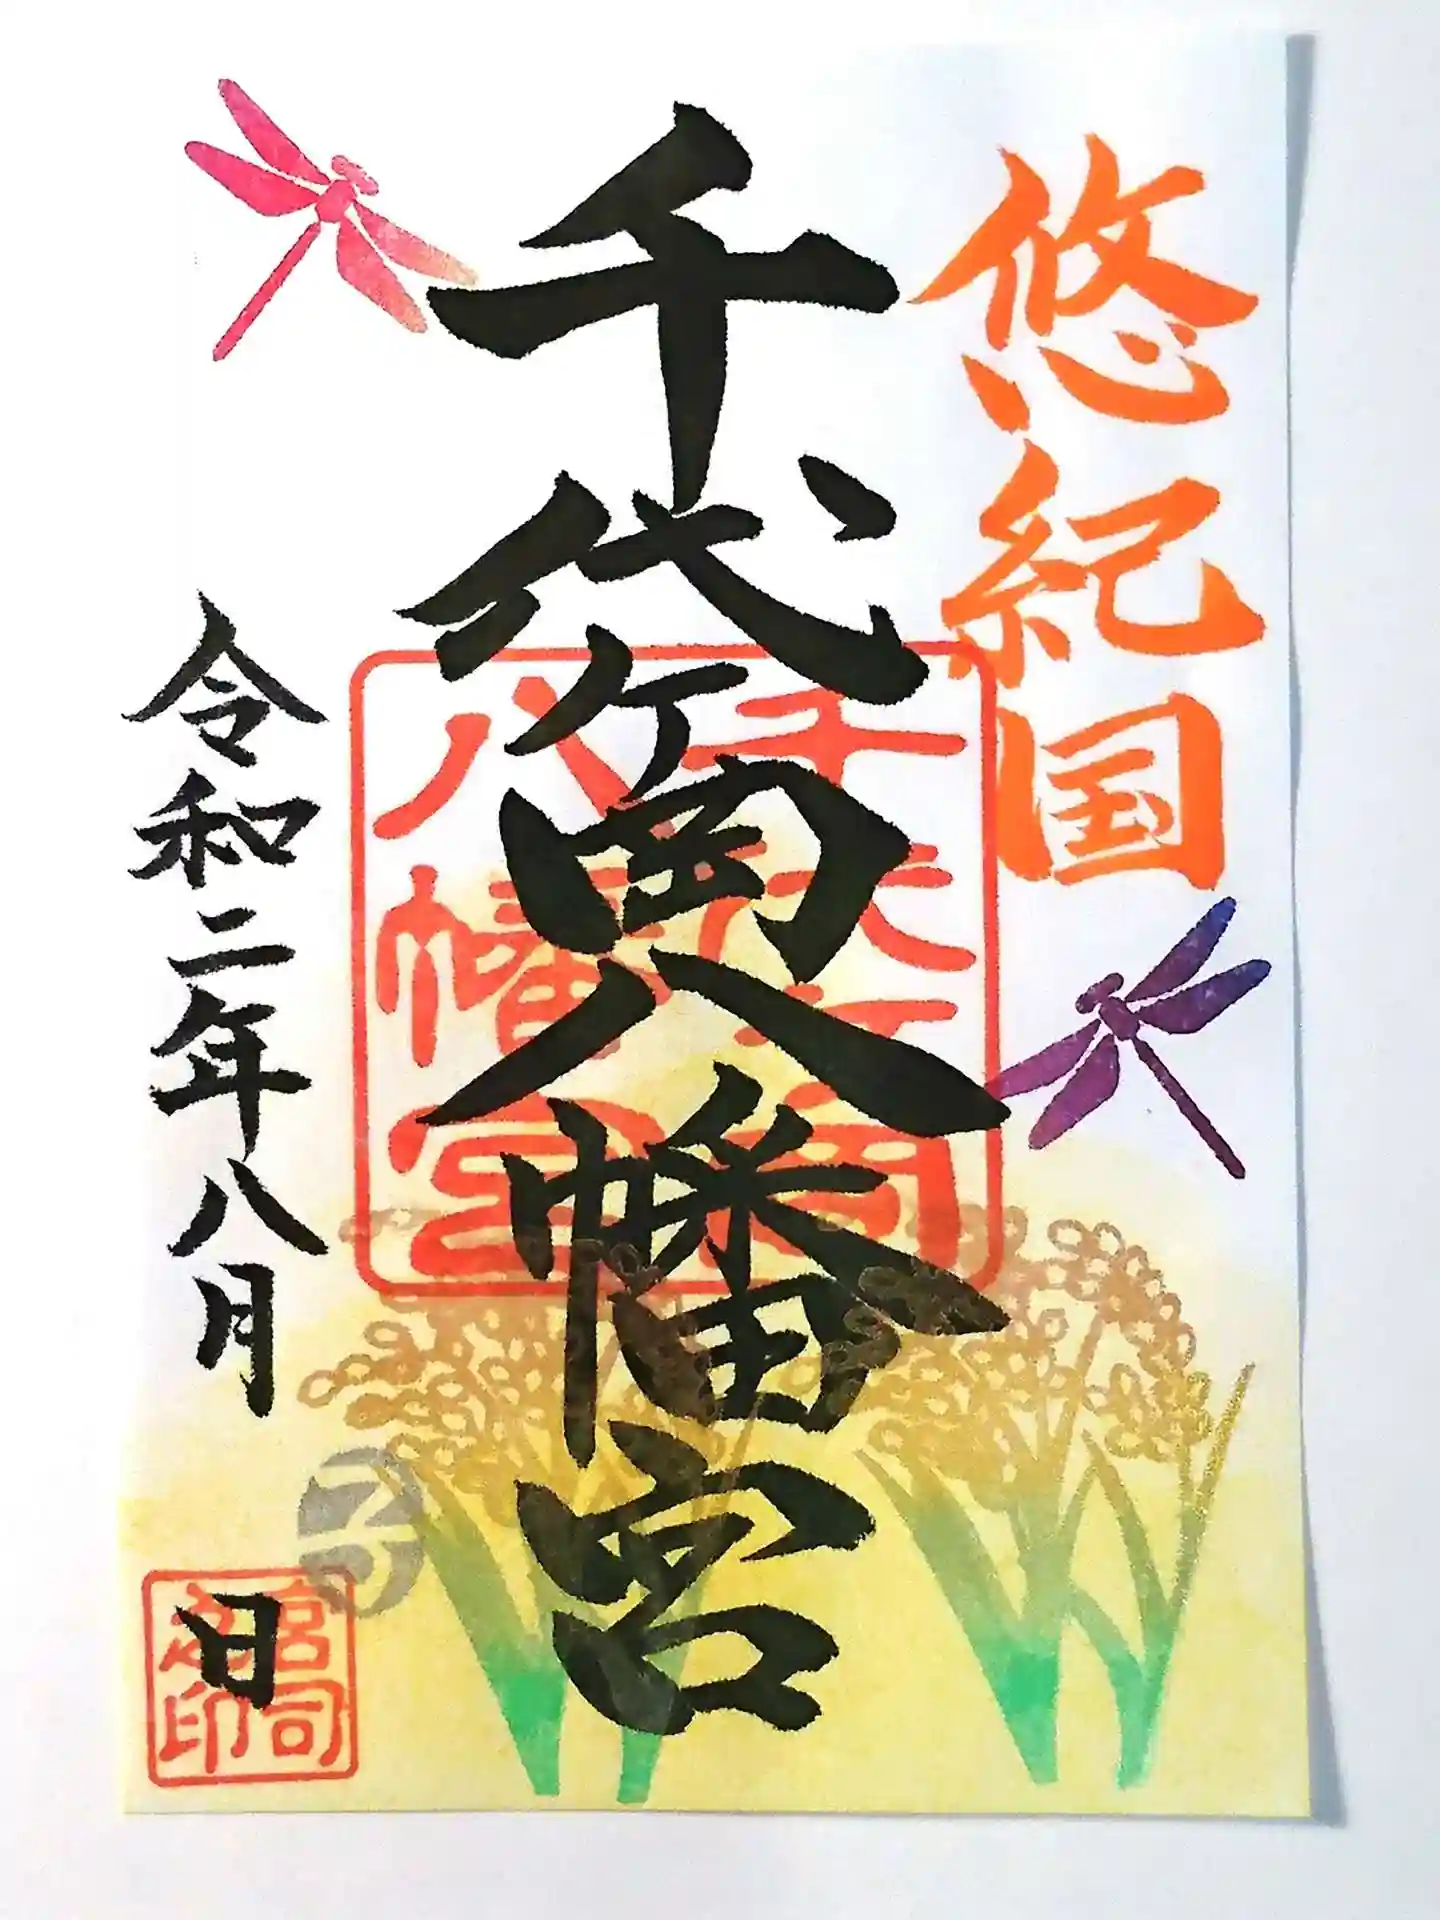 悠紀国
千代ヶ岡八幡宮
千代ヶ岡
八幡宮
令和二年八月
日
子
宮司
之印